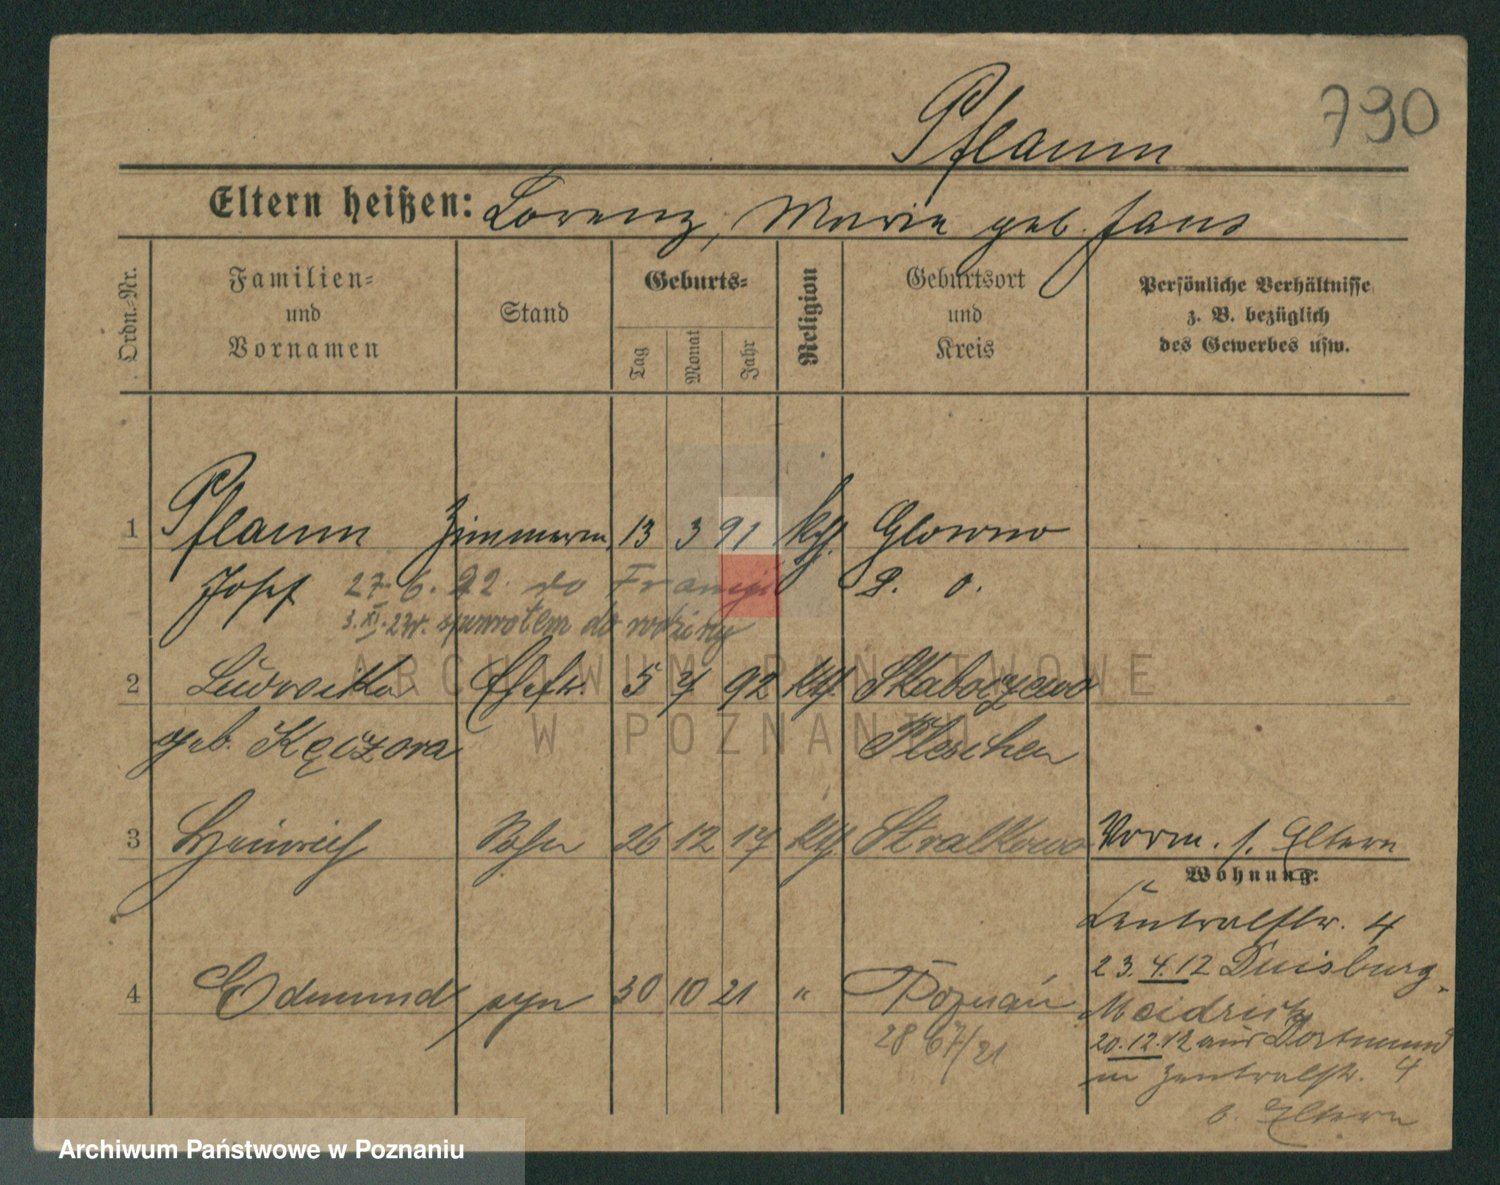 790
Pflaum
Eltern heißen: Lorenz, Marie geb. Jans
Ordn.-Nr.
Familien- und Vornamen
Stand
Geburts-
Tag
Monat
Jahr
Religion
Geburtsort und Kreis
Persönliche Verhältnisse z. B. bezüglich des Gewerbes usw.
1 Pflaum Zimmerm. 13 3 91 kth. Glowno
Josef 27. 6. 22. do Francji P. O.
3. XI. 23r. spowrotem do rodziny
2 Ludwika Ehefr. 5 7 92 kth.
geb. Kęczora Pleschen
3 Heinrich Sohn 26 12 17 kth. Stralkowo
Vorm. s. Eltern
Wohnung:
Zentralstr. 4
23.4.12 Duisburg-
Meidrich
4 Edmund syn 30 10 21 " Poznań
20.12.12 aus Dortmund
in Zentralstr. 4
b. Eltern
ARCHIWUM PAŃSTWOWE
W POZNANIU
Archiwum Państwowe w Poznaniu